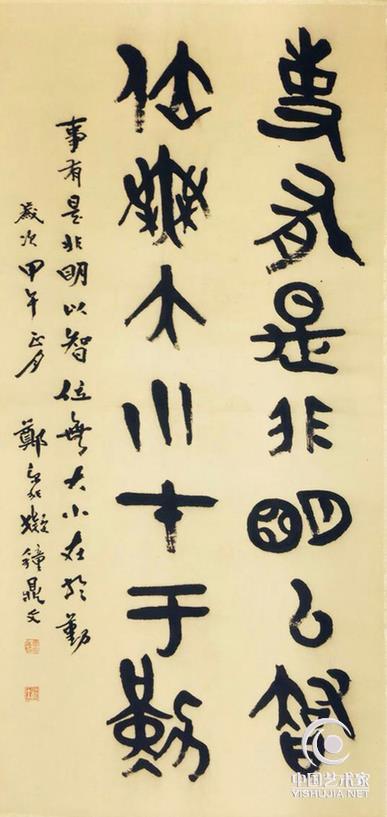 事有是非明以智
位無大小在于勤
事有是非明以智位無大小在於勤
歲次甲午正月 鄭 擬鐘鼎文
中国艺术家
YISHUJIA.NET